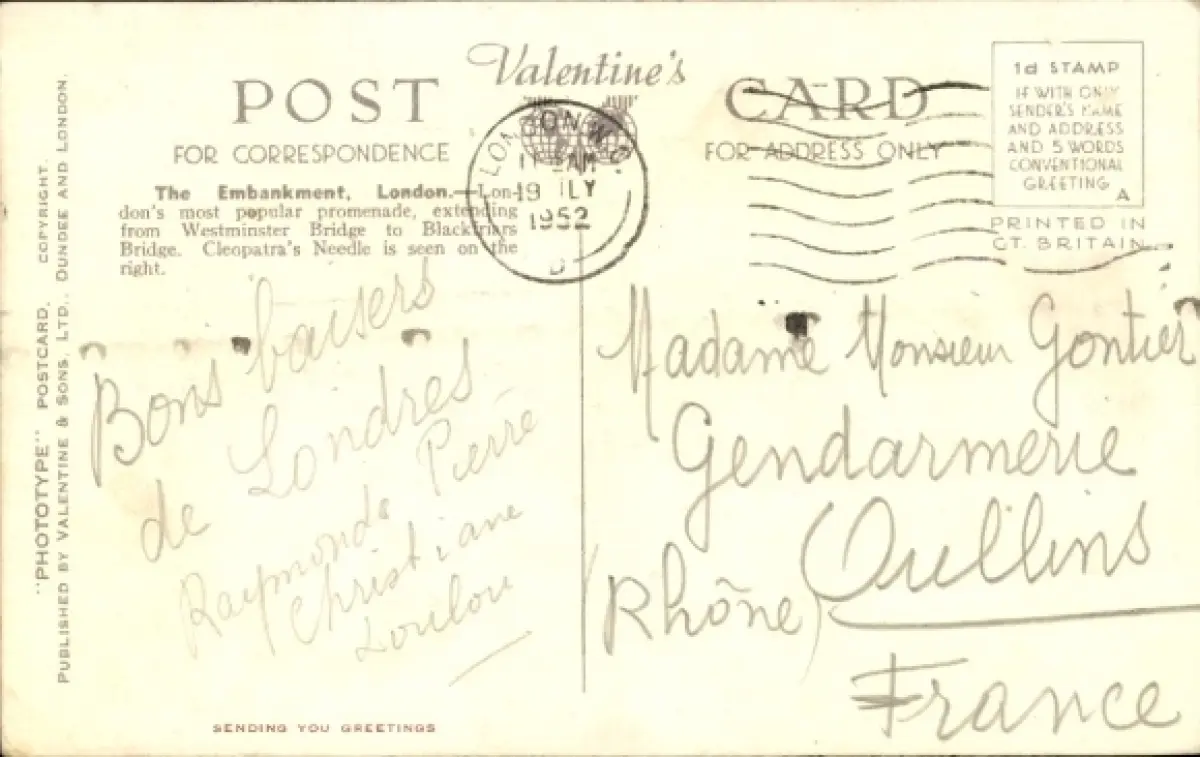 Valentine's
POST CARD
FOR CORRESPONDENCE
FOR ADDRESS ONLY
The Embankment, London.—Lon-
don's most popular promenade, extending
from Westminster Bridge to Blackfriars
Bridge. Cleopatra's Needle is seen on the
right.
LONDON W.C.
19 JLY
1952
D
1d STAMP
IF WITH ONLY
SENDER'S NAME
AND ADDRESS
AND 5 WORDS
CONVENTIONAL
GREETING
A
PRINTED IN
GT. BRITAIN
"PHOTOTYPE" POSTCARD. COPYRIGHT.
PUBLISHED BY VALENTINE & SONS, LTD., DUNDEE AND LONDON.
Bons baisers
de Londres
Raymonde Pierre
Christiane
Loulou
Madame Monsieur Gontier
Gendarmerie
Oullins
(Rhône)
France
SENDING YOU GREETINGS